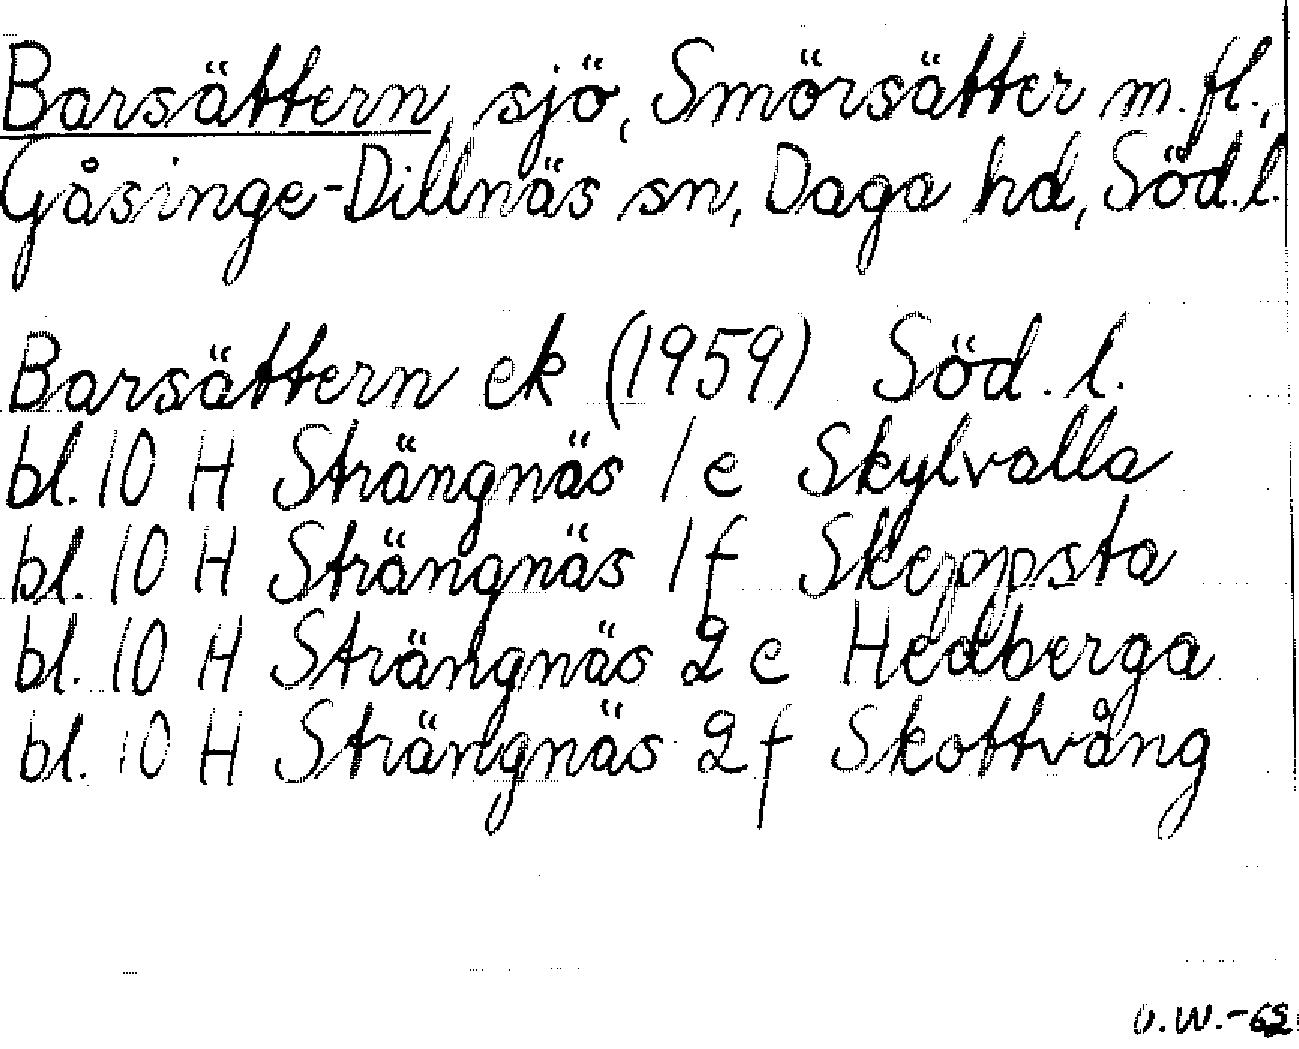 Barsättern, sjö, Smörsätter m.fl.,
Gåsinge-Dillnäs sn, Daga hd, Söd.l.
Barsättern ek (1959) Söd.l.
bl. 10 H Strängnäs 1 e Skylvalla
bl. 10 H Strängnäs 1 f Skeppsta
bl. 10 H Strängnäs 2 e Hedberga
bl. 10 H Strängnäs 2 f Skottvång